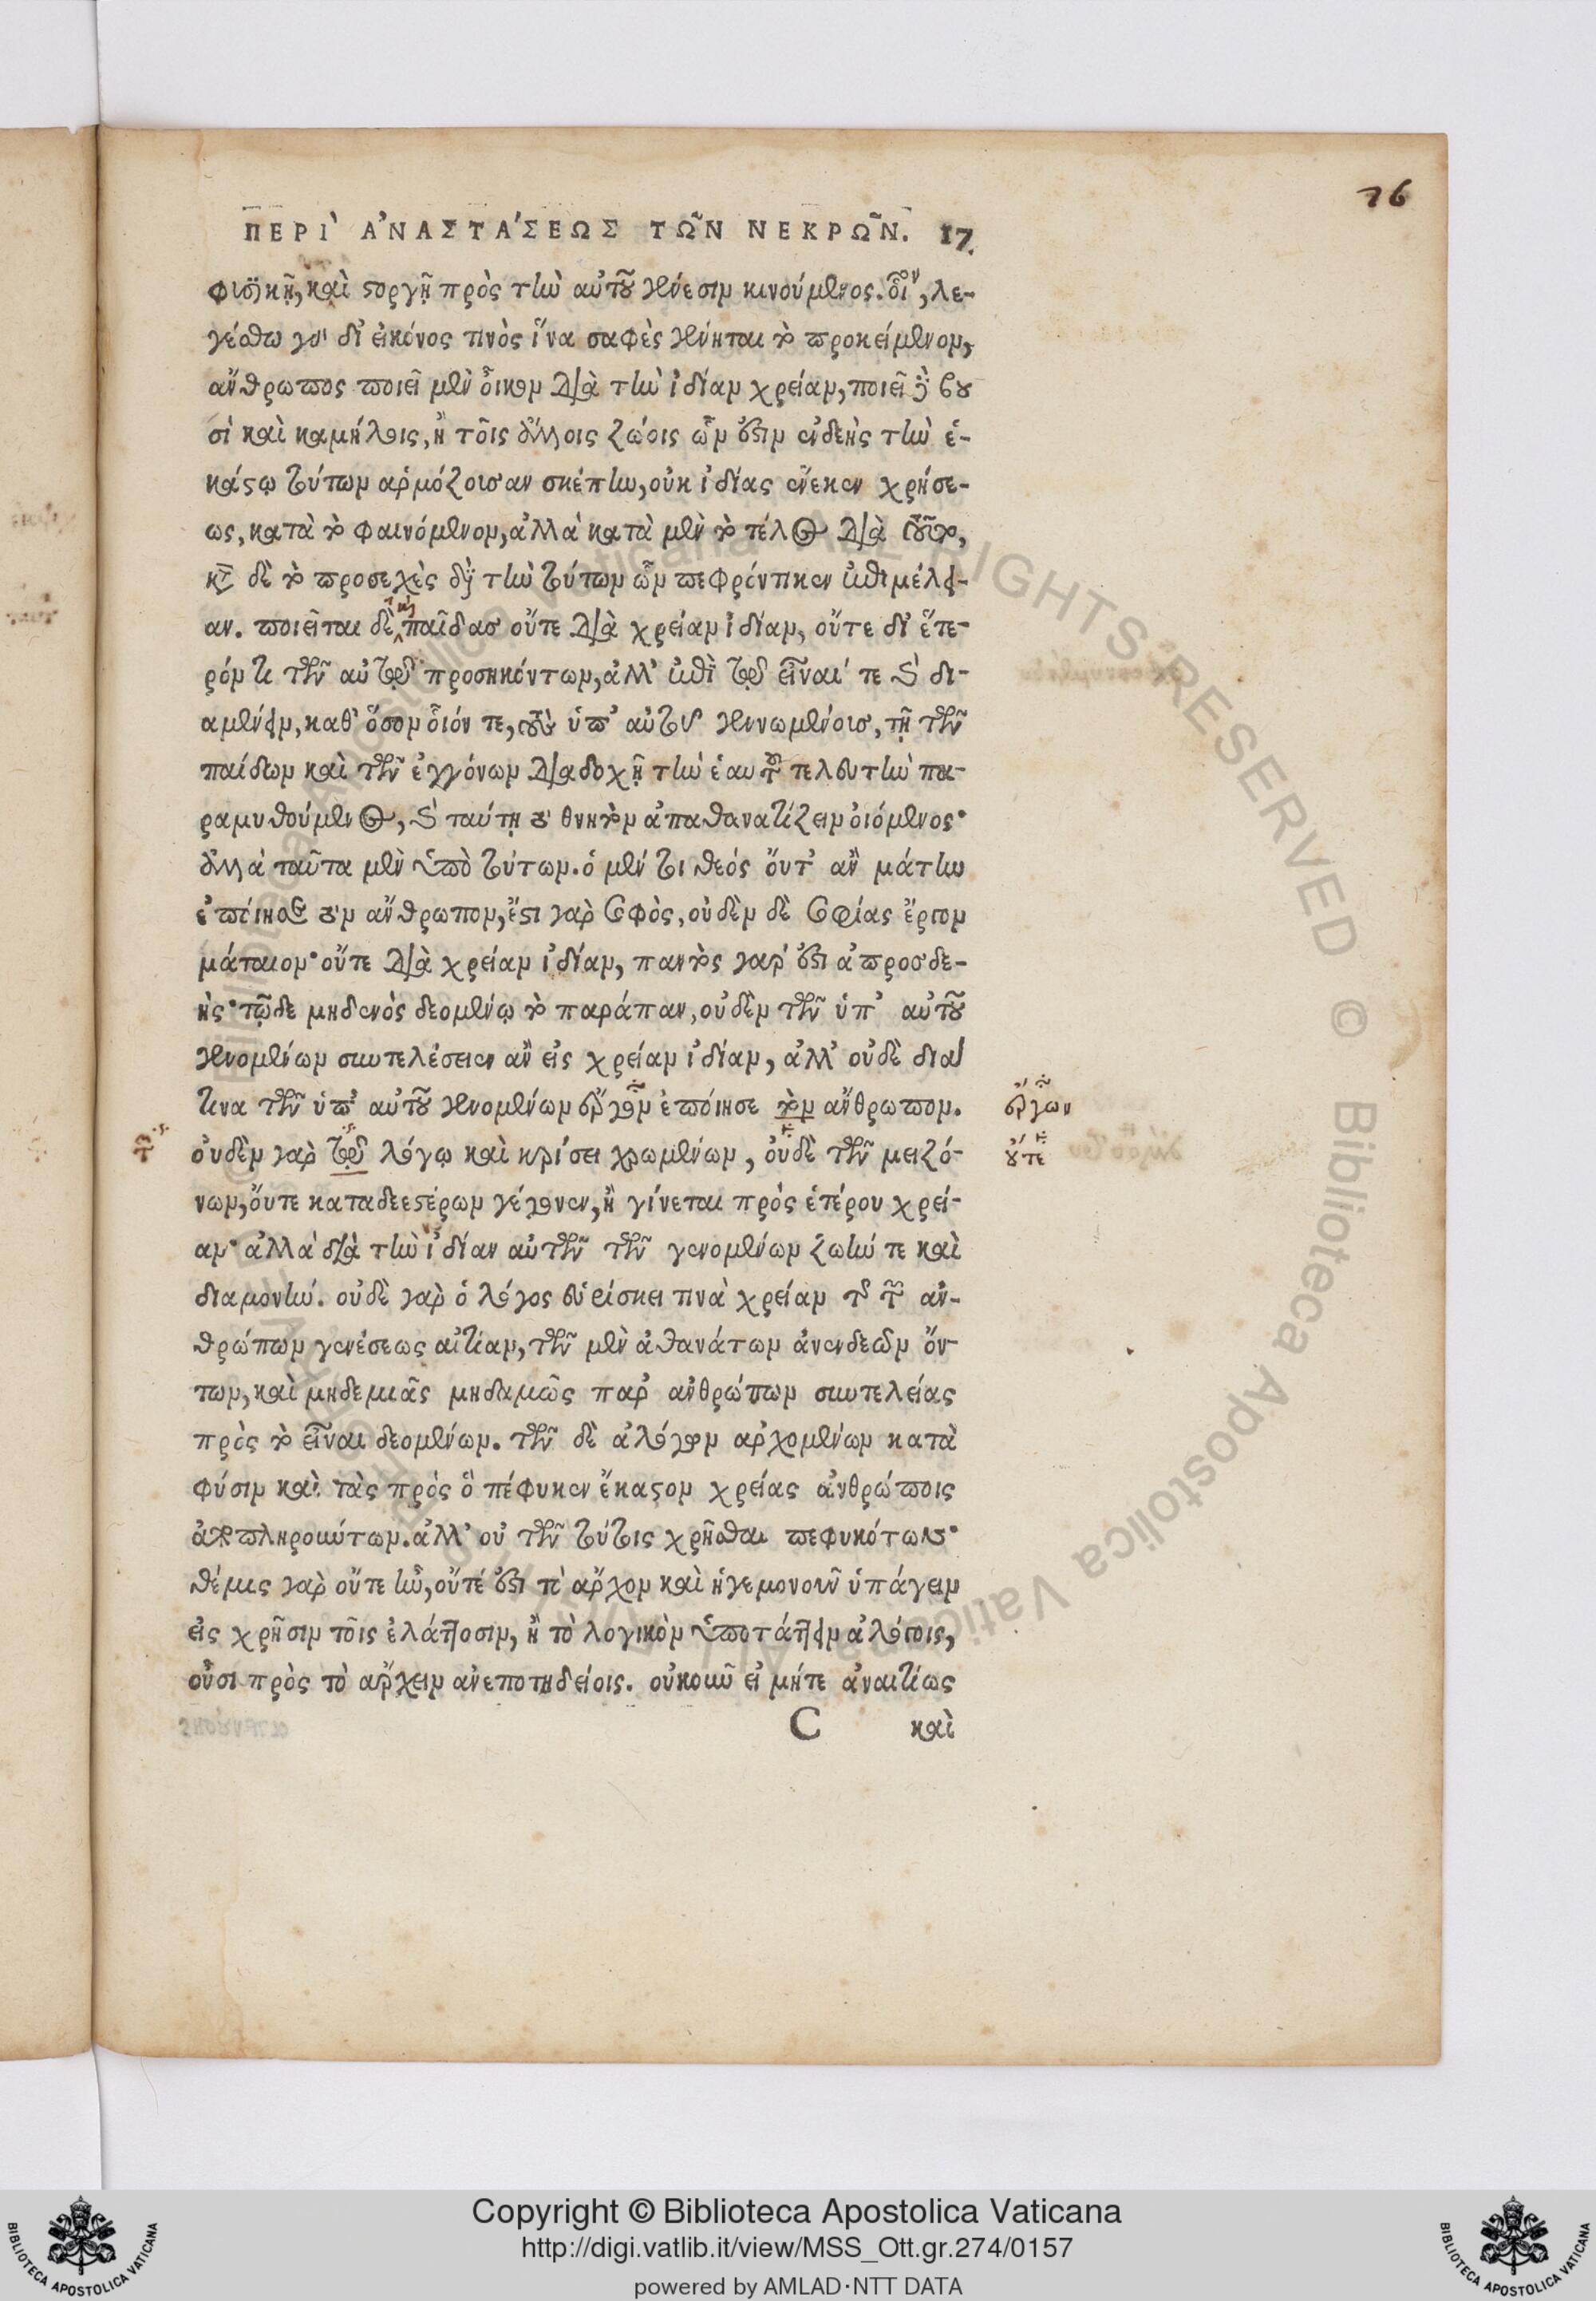 76
ΠΕΡΙ` ἈΝΑΣΤΑ´ΣΕΩΣ ΤΩ͂Ν ΝΕΚΡΩ͂Ν. 17
φυσικῇ, καὶ στοργῇ πρὸς τὴν αὐτοῦ γένεσιν κινούμενος. οἷον, λε-
γέσθω γὸ δι' εἰκόνος τινὸς ἵνα σαφὲς γένηται τὸ προκείμενον,
ἄνθρωπος ποιεῖ μὲν οἶκον διὰ τὴν ἰδίαν χρείαν, ποιεῖ δὲ βου
σὶ καὶ καμήλοις, ἢ τοῖς ἄλλοις ζώοις ὧν ἐστιν ἐνδεὴς τὴν ἑ-
κάστῳ τούτων ἁρμόζουσαν σκέπην, οὐκ ἰδίας ἕνεκεν χρήσε-
ως, κατὰ τὸ φαινόμενον, ἀλλὰ κατὰ μὲν τὸ τέλος διὰ τοῦτο,
κατὰ δὲ τὸ προσεχὲς διὰ τὴν τούτων ὧν πεφρόντικεν ἐπιμέλει-
αν. ποιεῖται δὲ καὶ παῖδας οὔτε διὰ χρείαν ἰδίαν, οὔτε δι' ἕτε-
ρόν τι τῶν αὐτῷ προσηκόντων, ἀλλ' ἐπὶ τῷ εἶναί τε καὶ δι-
αμένειν, καθ' ὅσον οἷόν τε, τοὺς ὑπ' αὐτοῦ γεννωμένους, τῇ τῶν
παίδων καὶ τῶν ἐγγόνων διαδοχῇ τὴν ἑαυτοῦ τελευτὴν πα-
ραμυθούμενος, καὶ ταύτῃ τὸ θνητὸν ἀπαθανατίζειν οἰόμενος·
ἀλλὰ ταῦτα μὲν ὑπὸ τούτων. ὁ μέν τοι θεός ὄυτ' ἂν μάτην
ἐποίησε τὸν ἄνθρωπον, ἔστι γὰρ σοφὸς, οὐδὲν δὲ σοφίας ἔργον
μάταιον· οὔτε διὰ χρείαν ἰδίαν, παντὸς γαρ ἐστι ἀπροσδε-
ὴς· τῷδε μηδενὸς δεομένῳ τὸ παράπαν, οὐδὲν τῶν ὑπ' αὐτοῦ
γενομένων συντελέσειεν ἂν εἰς χρείαν ἰδίαν, ἀλλ' οὐδὲ διά
τινα τῶν ὑπ' αὐτοῦ γενομένων ἔργον ἐποίησε τὸν ἄνθρωπον.
ἔργων
ὀυδὲν γαρ τῷ λόγῳ καὶ κρίσει χρωμένων, ὀυδὲ τῶν μειζό-
οὔτε
νων, ὄυτε καταδεεστέρων γέγονεν, ἢ γίνεται πρὸς ἑτέρου χρεί-
αν· ἀλλὰ διὰ τὴν ἰδίαν αὐτῶν τῶν γενομένων ζωήν τε καὶ
διαμονήν. οὐδὲ γὰρ ὁ λόγος εὑρίσκει τινὰ χρείαν τῆς τῶν ἀν-
θρώπων γενέσεως αἰτίαν, τῶν μὲν ἀθανάτων ἀνενδεῶν ὄν-
των, καὶ μηδεμιᾶς μηδαμῶς παρ' ἀνθρώπων συντελείας
πρὸς τὸ εἶναι δεομένων. τῶν δὲ ἀλόγων ἀρχομένων κατὰ
φύσιν καὶ τὰς πρὸς ὃ πέφυκεν ἕκαστον χρείας ἀνθρώποις
ἀποπληρούντων. ἀλλ' οὐ τῶν τούτοις χρῆσθαι πεφυκότων·
θέμις γαρ οὔτε ἦν, οὔτέ ἐστι τὸ ἄρχον καὶ ἡγεμονοῦν ὑπάγειν
εἰς χρῆσιν τοῖς ἐλάττοσιν, ἢ τὸ λογικὸν ὑποτάττειν ἀλόγοις,
οὖσι πρὸς τὸ ἄρχειν ἀνεποτηδείοις. οὐκοῦν εἰ μήτε ἀναιτίως
C καὶ
Copyright © Biblioteca Apostolica Vaticana
http://digi.vatlib.it/view/MSS_Ott.gr.274/0157
powered by AMLAD·NTT DATA